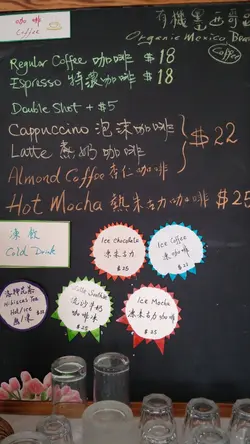 咖啡
Coffee
有機墨西哥
Organic Mexico Bea
Regular Coffee 咖啡 $18
Espresso 特濃咖啡 $18
Double Shot + $5
Cappuccino 泡沫咖啡
Latte 蒸奶咖啡
$22
Almond Coffee 杏仁咖啡
Hot Mocha 熱朱古力咖啡 $25
凍飲
Cold Drink
Ice Chocolate
凍朱古力
$25
Ice Coffee
凍咖啡
Hibiscus Tea
Hot/ice
熱/凍
咖啡冰
$25
Ice Mocha
凍朱古力咖啡